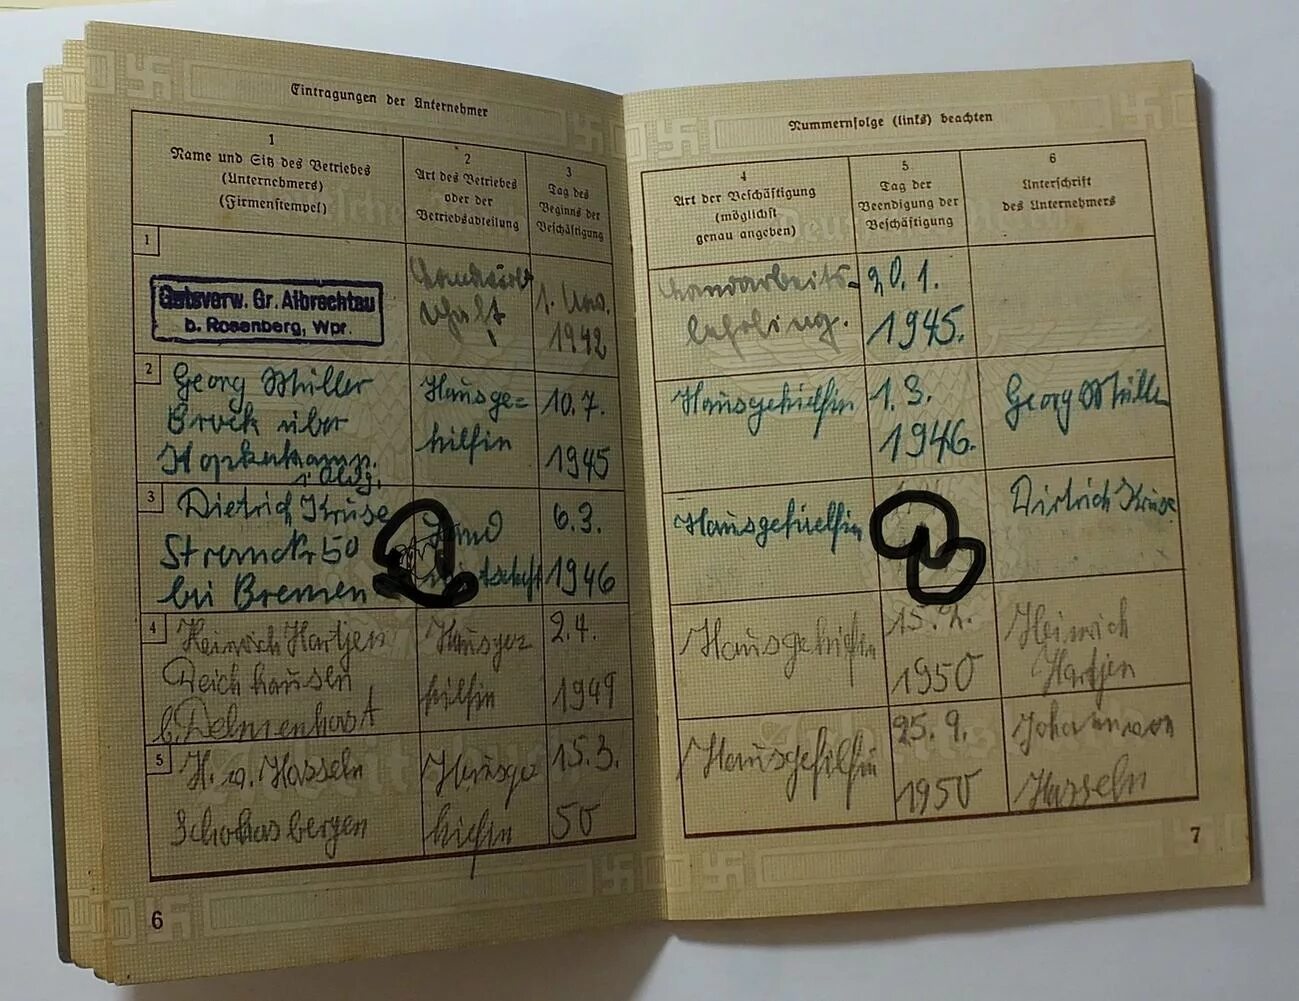 Eintragungen der Unternehmer
1
Name und Sitz des Betriebes
(Unternehmers)
(Firmenstempel)
2
Art des Betriebes
oder der
Betriebsabteilung
3
Tag des
Beginns der
Beschäftigung
1
Gutsverw. Gr. Albrechtau
b. Rosenberg, Wpr.
Landwirt
schaft
1. Nov.
1942
2
Georg Müller
Brock über
i. Oldg.
Hausge=
hilfin
10.7.
1945
3
Dietrich Kruse
50
bei Bremen
Land
wirtschaft
6.3.
1946
4
Heinrich Hartjen
Deichhausen
b. Delmenhorst
Hausge
hilfin
2.4.
1949
5
H. v. Hasseln
Schohasbergen
Hausge
hilfin
15.3.
50
6
Nummernfolge (links) beachten
4
Art der Beschäftigung
(möglichst
genau angeben)
5.
Tag der
Beendigung der
Beschäftigung
6
Unterschrift
des Unternehmers
Landarbeits-
lehrling.
20.1.
1945.
Hausgehielfin
1.3.
1946.
Georg Müller
Hausgehielfin
Dietrich Kruse
Hausgehilfin
15.2.
1950
Heinrich
Hartjen
Hausgehilfin
25.9.
1950
Johann von
Hasseln
7